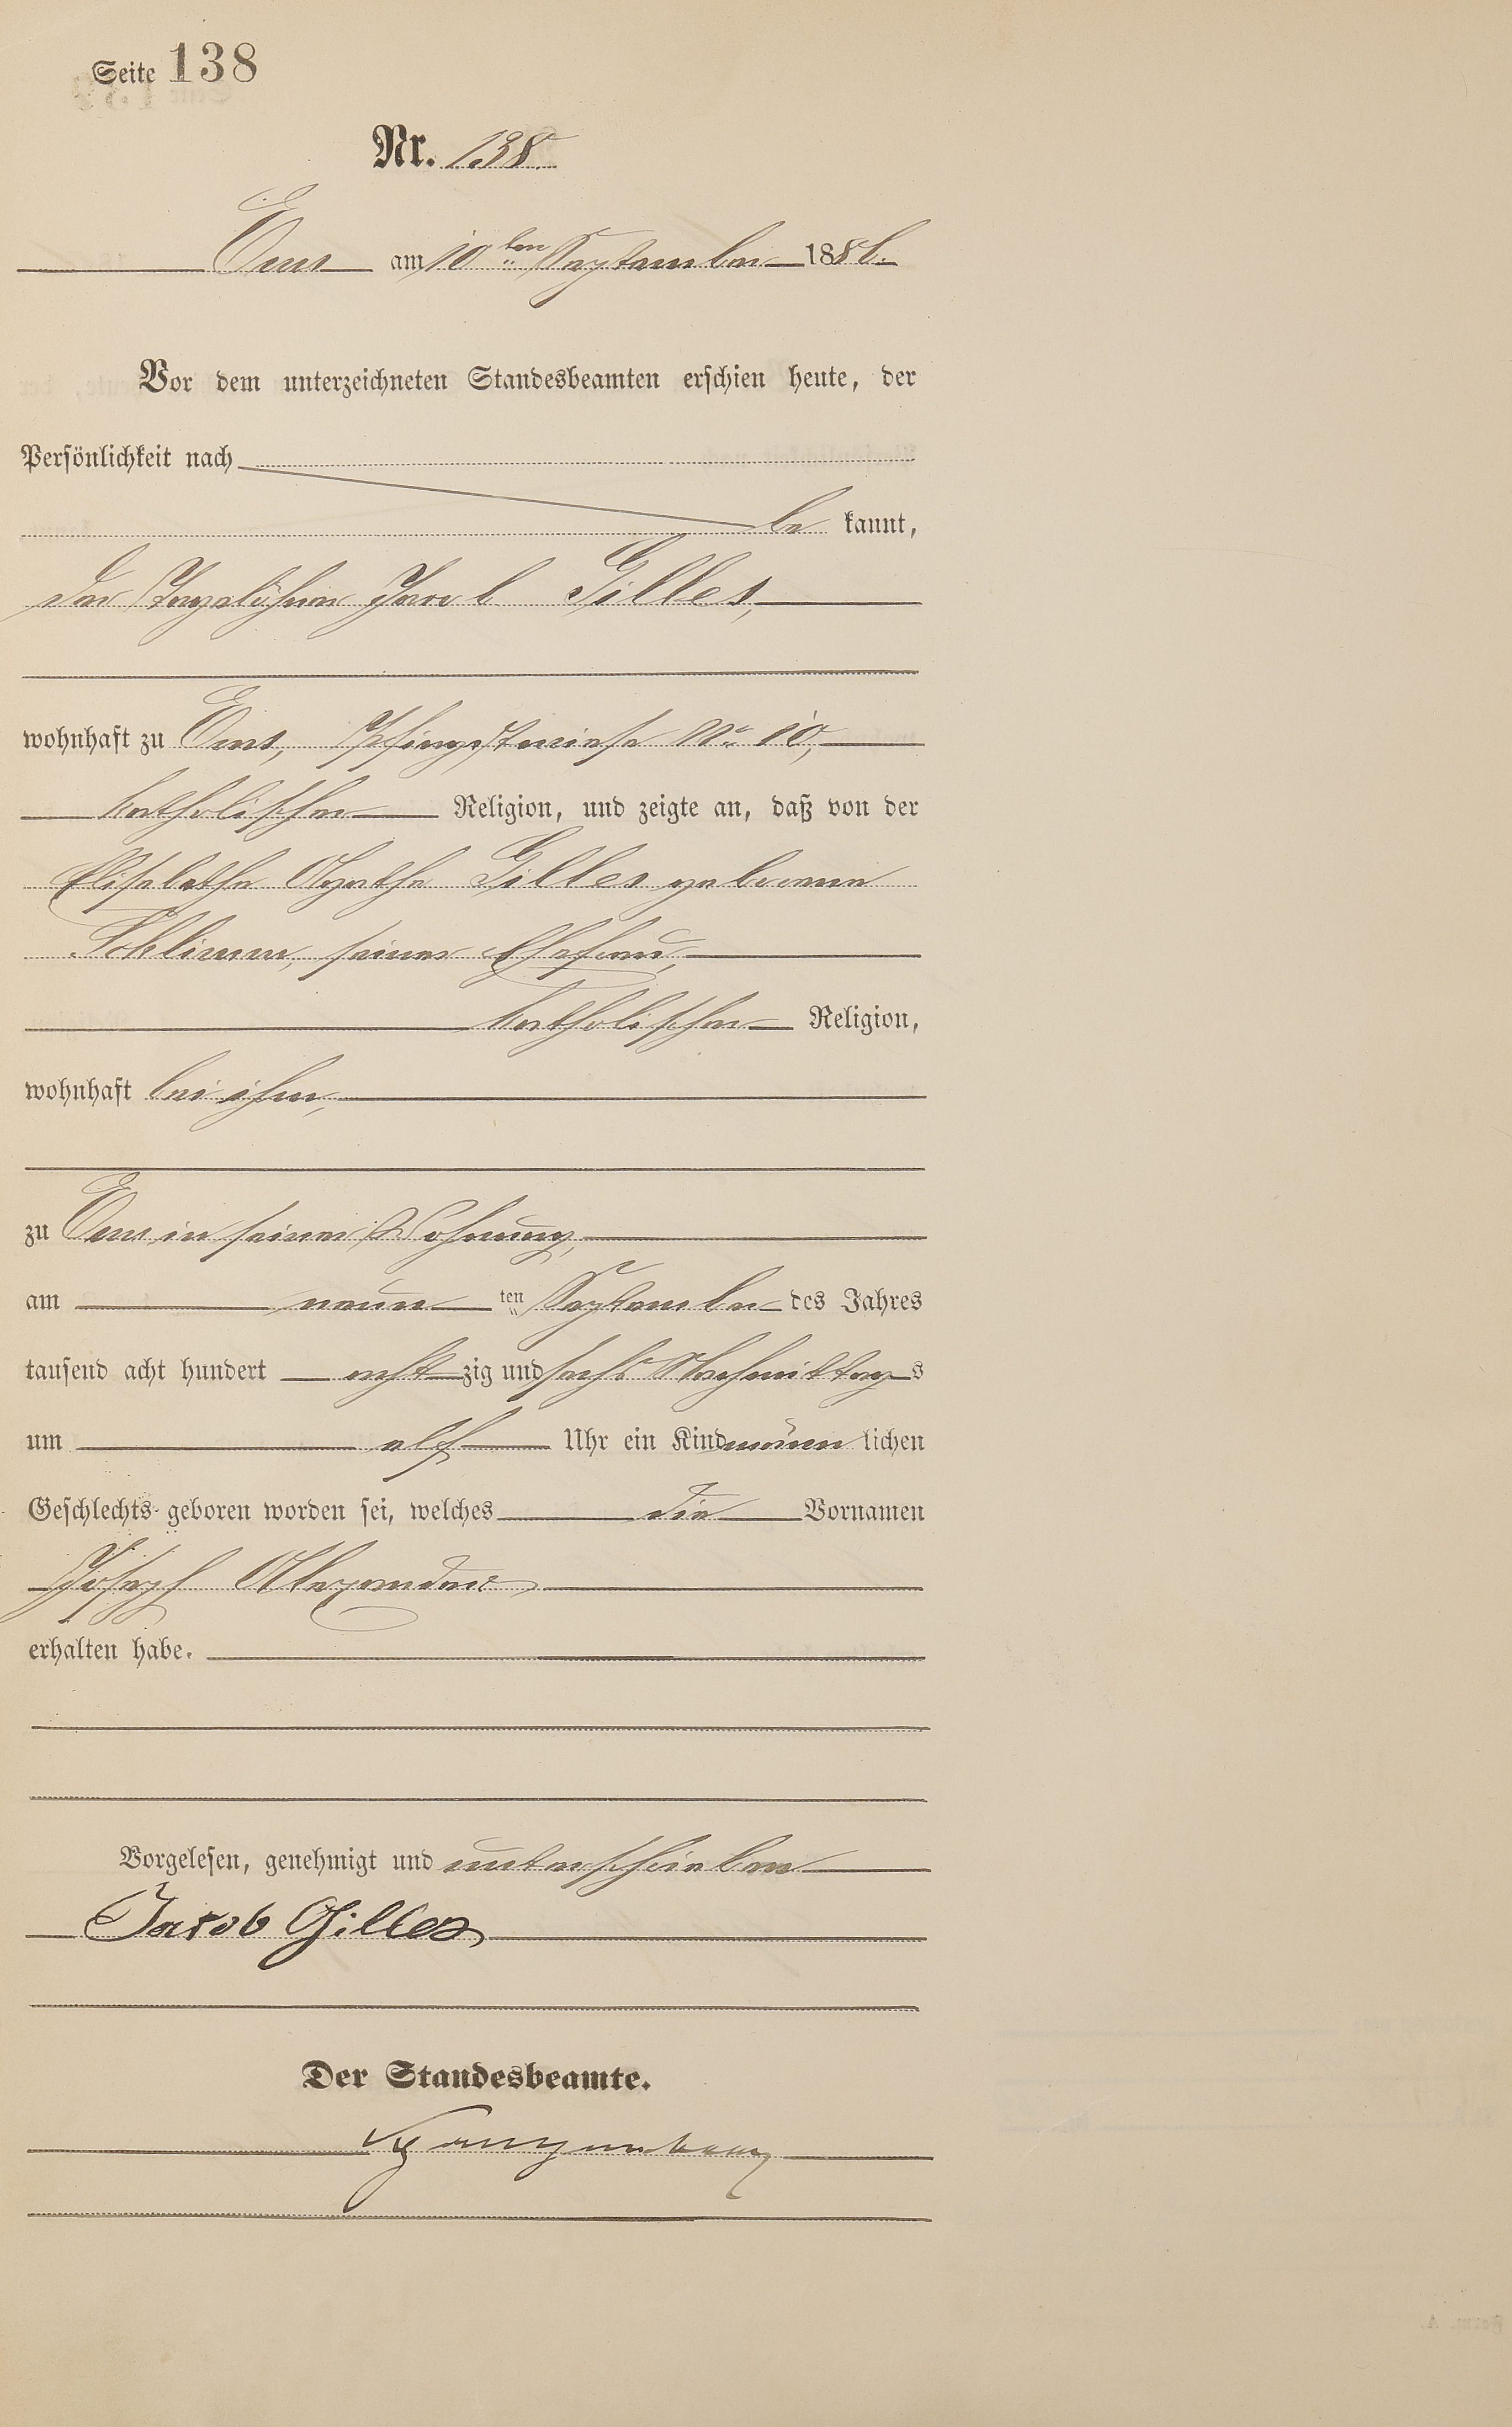 Seite 138
Nr. 138.
Ems am 10ten September 1886.
Vor dem unterzeichneten Standesbeamten erschien heute, der
Persönlichkeit nach
be kannt,
der Tagelöhner Jacob Gilles,
wohnhaft zu Ems, Pfingstwiese No 10,
katholischer Religion, und zeigte an, daß von der
Elisabethe Agathe Gilles geborene
seiner Ehefrau,
katholischer Religion,
wohnhaft bei ihm,
zu Ems in seiner Wohnung,
am neun ten September des Jahres
tausend acht hundert acht zig und sechs Nachmittags
um elf Uhr ein Kind männ lichen
Geschlechts geboren worden sei, welches die Vornamen
Joseph Alexander
erhalten habe.
Vorgelesen, genehmigt und unterschrieben
Jacob Gilles
Der Standesbeamte.